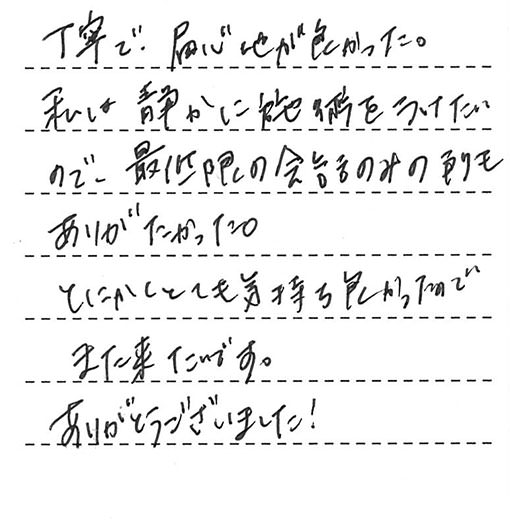 丁寧で、居心地が良かった。
私は静かに施術をうけたい
ので、最低限の会話のみの所も
ありがたかった。
とにかくとても気持ち良かったので
また来たいです。
ありがとうございました!